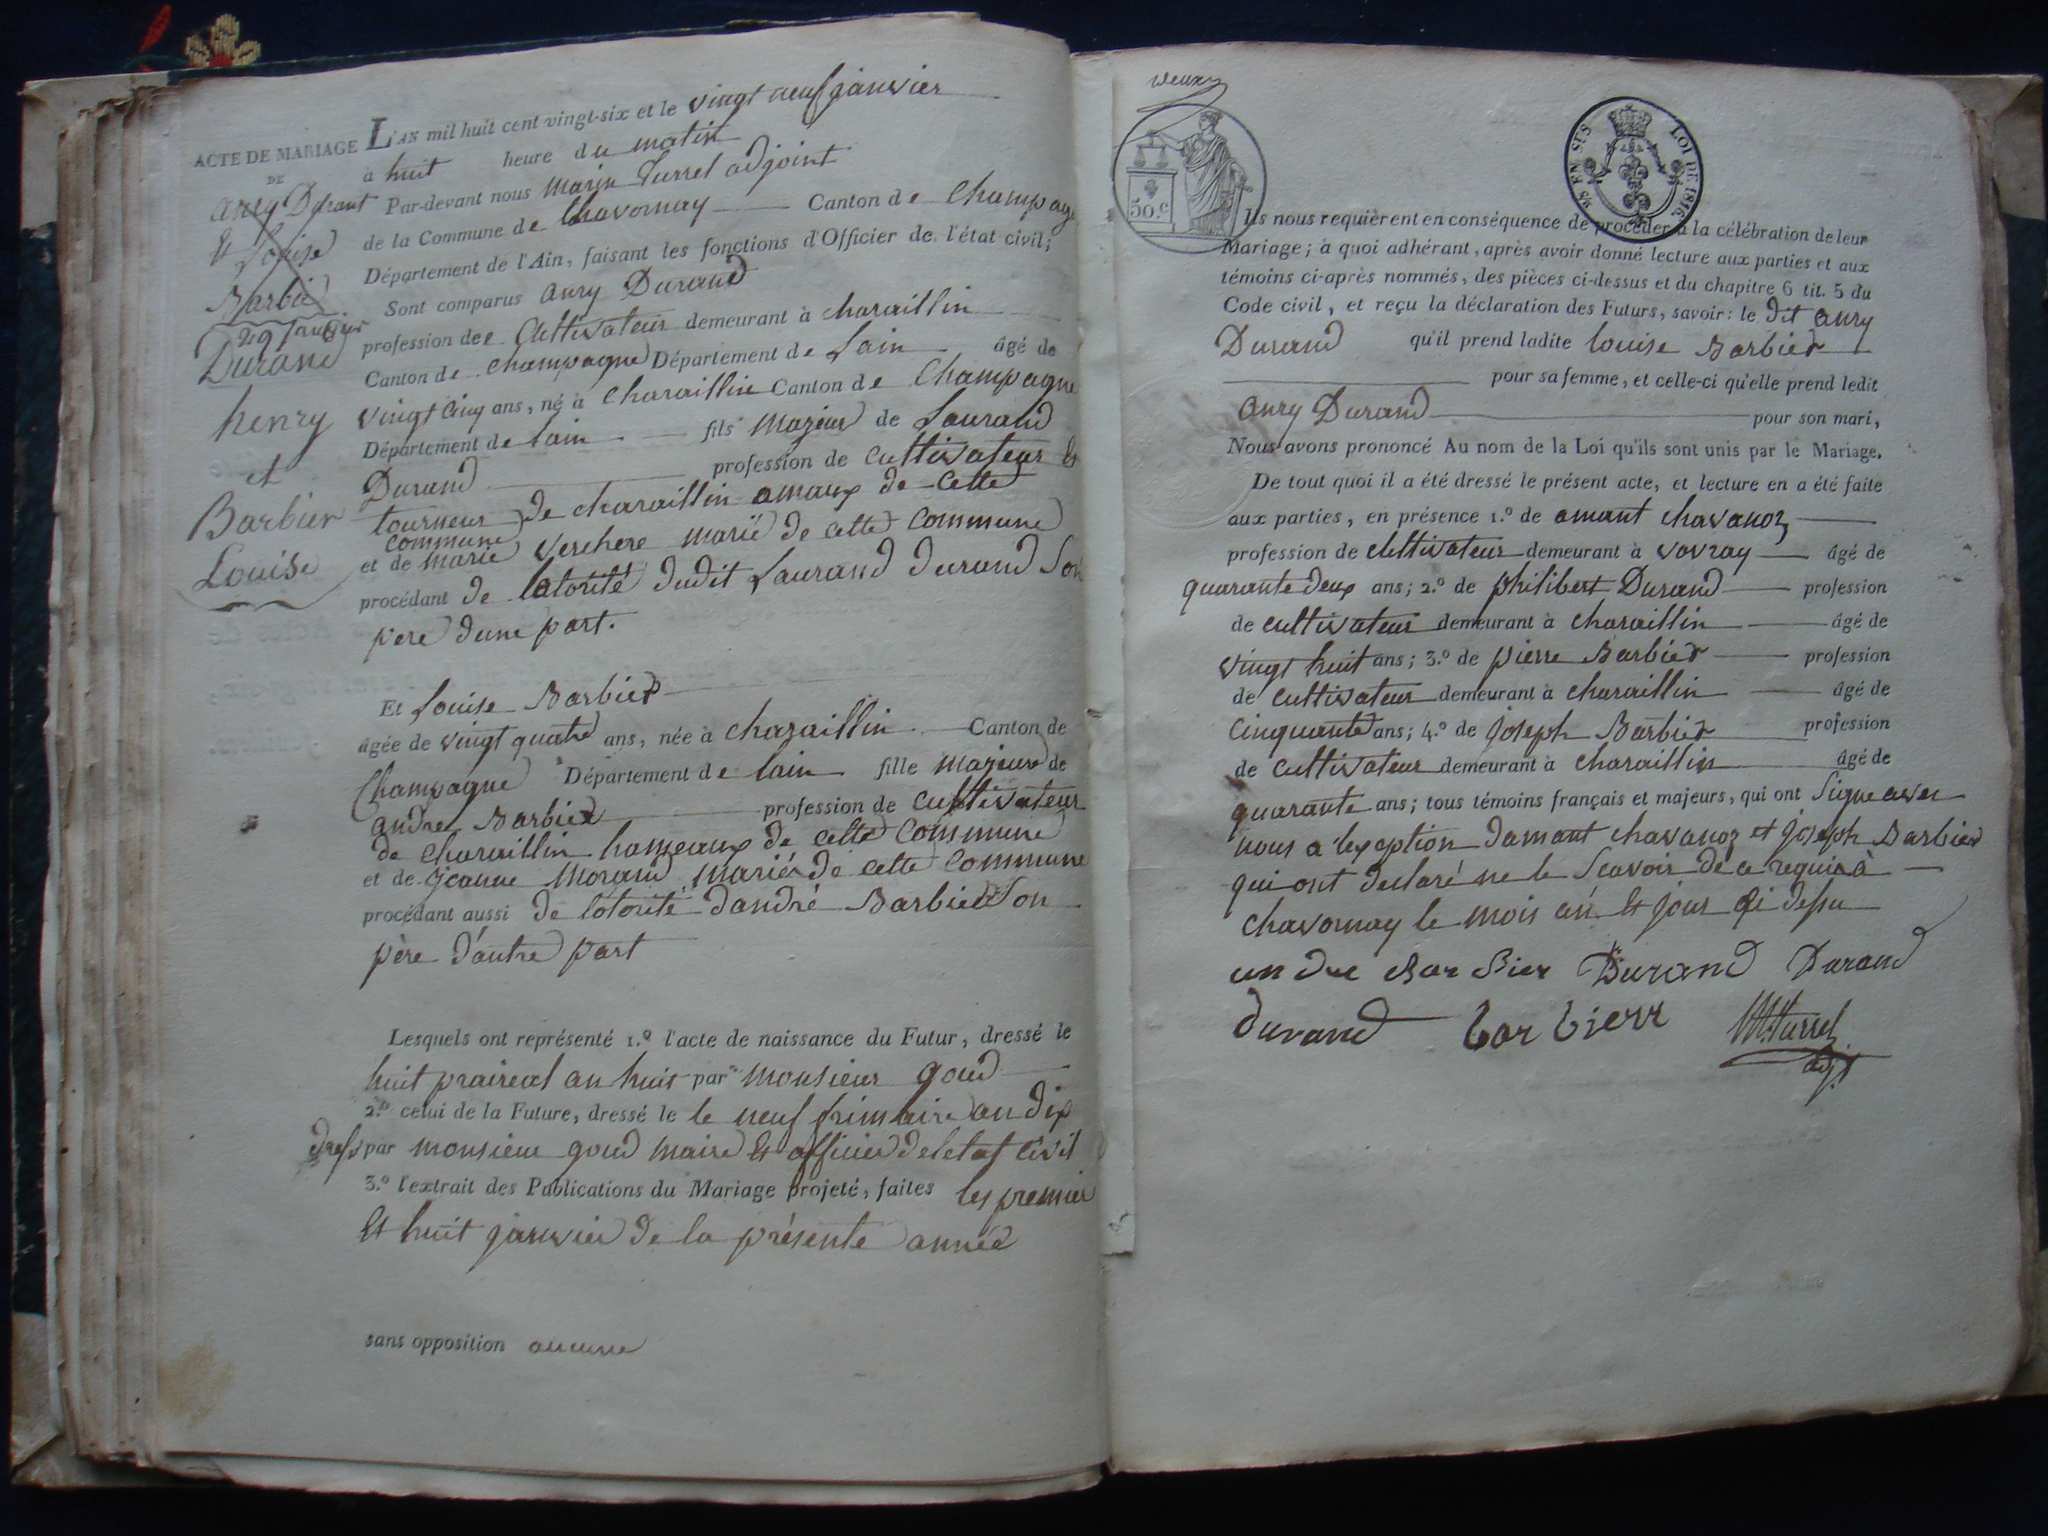 ACTE DE MARIAGE
DE
anry Durant
Et Louise
Barbier
29 janvier
Durand
henry
et
Barbier
Louise
L'AN mil huit cent vingt-six et le vingt neuf janvier
à huit heure du matin
Par-devant nous marin turrel adjoint
de la Commune de Chavornay Canton de Champagne
Département de l'Ain, faisant les fonctions d'Officier de l'état civil;
Sont comparus anry Durand
profession de Cultivateur demeurant à charaillin
Canton de champagne Département de Lain âgé de
vingt cinq ans, né à Charaillin Canton de Champagne
Département de lain fils majeur de Laurand
Durand profession de cultivateur Et
tourneur de charaillin amaux de cette
commune
et de marie verchere marié de cette commune
procédant de lotorité dudit Laurand durand Son
pere dune part.
Et Louise Barbier
âgée de vingt quatre ans, née à charaillin Canton de
Champagne Département de lain fille majeure de
andre Barbier profession de cultivateur
de charaillin hameaux de cette commune
et de jeanne morand mariés de cette commune
procédant aussi de lotorité dandré Barbier Son
père d'autre part
Lesquels ont représenté 1.º l'acte de naissance du Futur, dressé le
huit praireal an huit par monsieur goud
2.º celui de la Future, dressé le le neuf frimaire an dix
par monsieur goud maire Et officier de letat civil
3.º l'extrait des Publications du Mariage projeté, faites les premier
Et huit janvier de la présente année
sans opposition aucune
deux
50.c
25 EN SUS
LOI DE 1816
Ils nous requièrent en conséquence de procéder à la célébration de leur
Mariage; à quoi adhérant, après avoir donné lecture aux parties et aux
témoins ci-après nommés, des pièces ci-dessus et du chapitre 6 tit. 5 du
Code civil, et reçu la déclaration des Futurs, savoir: le dit anry
Durand qu'il prend ladite louise Barbier
pour sa femme, et celle-ci qu'elle prend ledit
anry Durand pour son mari,
Nous avons prononcé Au nom de la Loi qu'ils sont unis par le Mariage.
De tout quoi il a été dressé le présent acte, et lecture en a été faite
aux parties, en présence 1.º de amant chavanoz
profession de cultivateur demeurant à vovray âgé de
quarante deux ans; 2.º de philibert Durand profession
de cultivateur demeurant à charaillin âgé de
vingt huit ans; 3.º de pierre Barbier profession
de cultivateur demeurant à charaillin âgé de
cinquante ans; 4.º de joseph Barbier profession
de cultivateur demeurant à charaillin âgé de
quarante ans; tous témoins français et majeurs, qui ont Signe avec
nous a lexception damant chavanoz et joseph Barbier
qui ont declaré ne le Scavoir de ce requis à
chavornay le mois an Et jour qi dessu
an dre Bar Bier Durand Durand
durand bar bierr M. turrel
adj.t